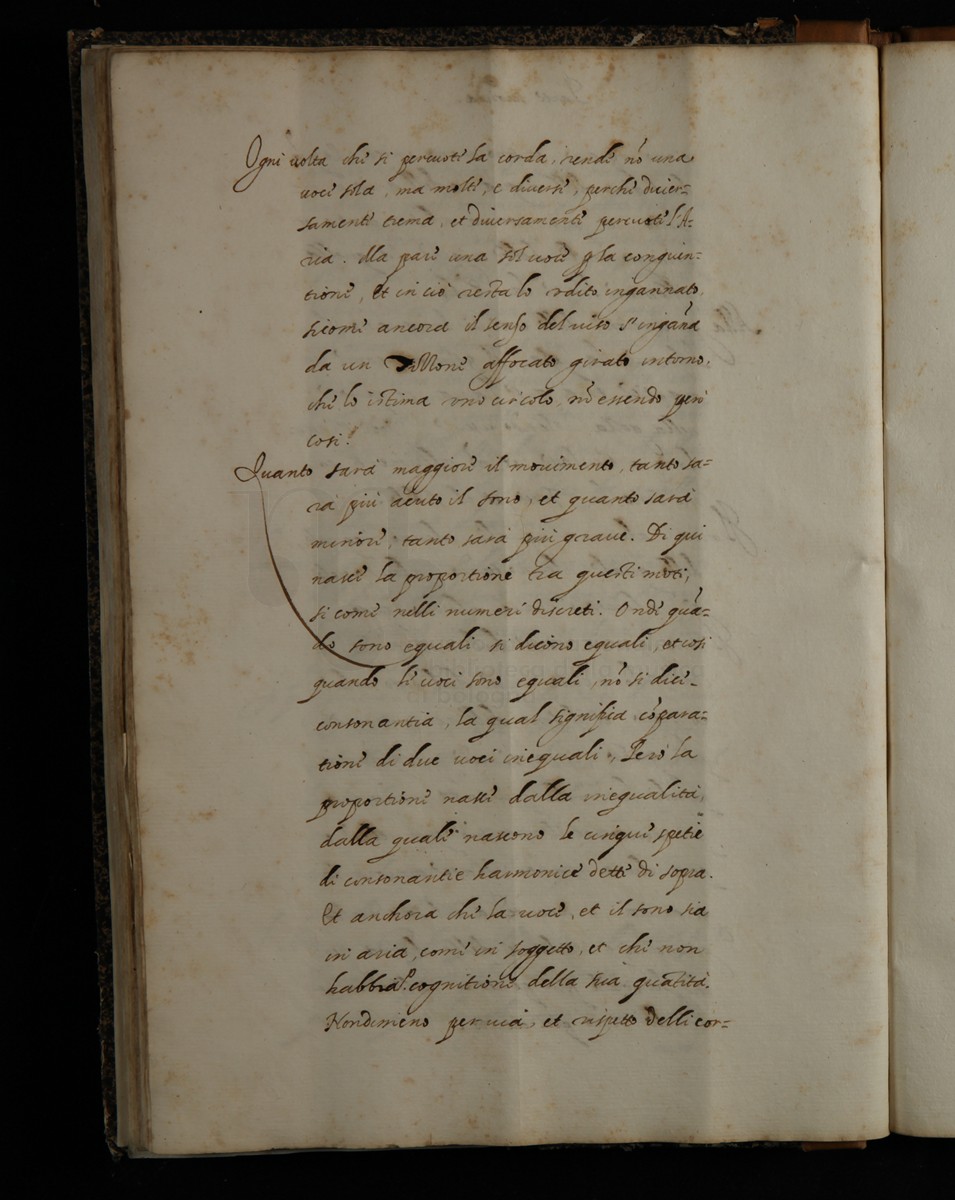 Ogni uolta che si percuote la corda, rende nõ una
uoce sola, ma molte, e diuerse, perche diuer=
samente trema, et diuersamente percuote l'A=
ria. Ma pare una sol uoce p la congiun=
tione, et in ciò resta lo udito ingannato,
sicome ancora il senso del uiso s'ingãna
da un affocato girato intorno,
che lo istima uno circolo, nõ essendo però
cosi.
Quanto sarà maggiore il mouimento, tanto sa=
rà più acuto il sono, et quanto sarà
minore, tanto sarà più graue. Di qui
nasce la proportione tra questi moti,
si come nelli numeri discreti. Onde quã=
do sono eguali si dicono eguali, et cosi
quando le uoci sono eguali, nõ si dice
consonantia, la qual significa cõpara=
tione di due uoci inequali. Però la
proportione nasce dalla inequalità,
dalla quale nascono le cinque spetie
di consonantie harmonice dette di sopra.
Et anchora che la uoce, et il sono sia
in aria, come in soggetto, et che non
habbia cognitione della sua quãtità.
Nondimeno per uia, et rispetto delli cor=